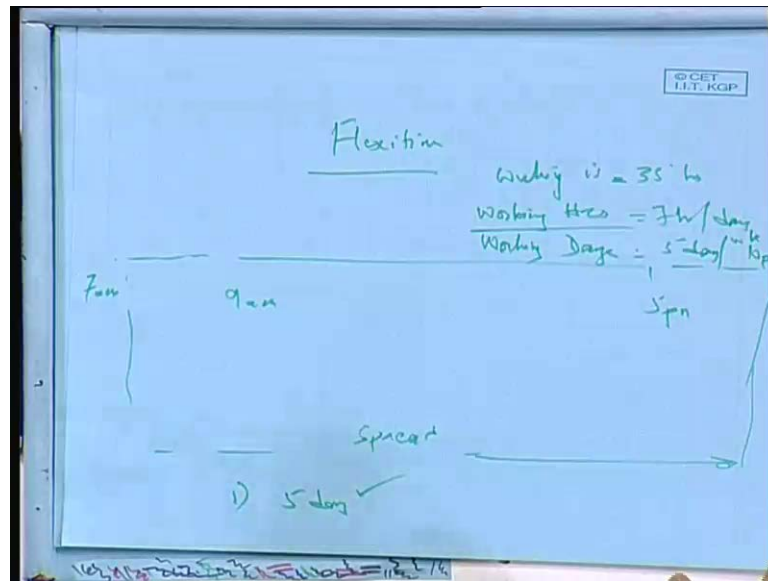 © CET
I.I.T. KGP
Flexitim
working is = 35 hr
Working Hrs = 7 hr/day
Working Days = 5 day/
7am
9am
5pm
Spread
1) 5 day ✓